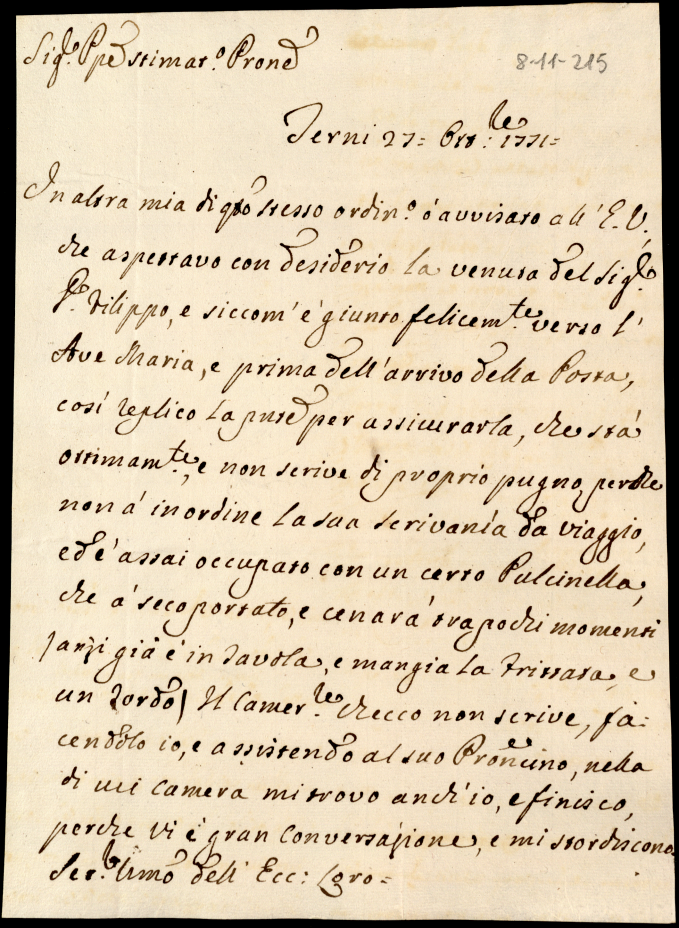 Sig.e Ppe stimat.o Prone
8-11-215
Terni 27= Ott:re 1771=
In altra mia di qto stesso ordin.o ò avvisato all' E. V.,
che aspettavo con desiderio la venuta del Sig.e
Filippo, e siccom' è giunto felicem.te verso l'
Ave Maria, e prima dell'arrivo della Posta,
così replico la pnte per assicurarla, che stà
ottimam.te, e non scrive di proprio pugno, perche
non à in ordine la sua scrivanìa da viaggio,
ed è assai occupato con un certo Pulcinella,
che à seco portato, e cenarà trapochi momenti
(anzi già è in Tavola, e mangia la Frittata, e
un Tordo) Il Camer.re Checco non scrive, fa=
cendolo io, e assistendo al suo Proncino, nella
di cui Camera mi trovo anch'io, e finisco,
perche vi è gran Conversazione, e mi stordiscono.
Ser: Umo dell' Ecc: